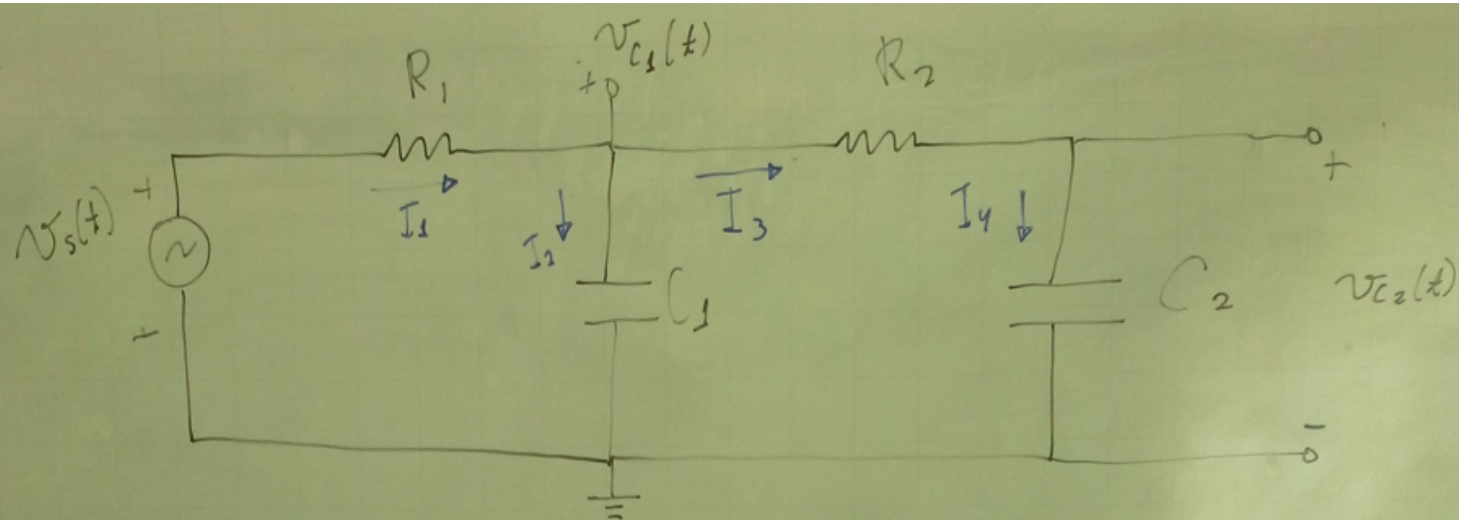 v_C1(t)
R1
R2
+
+
v_s(t)
I1
I2
C1
I3
I4
C2
+
v_C2(t)
-
+